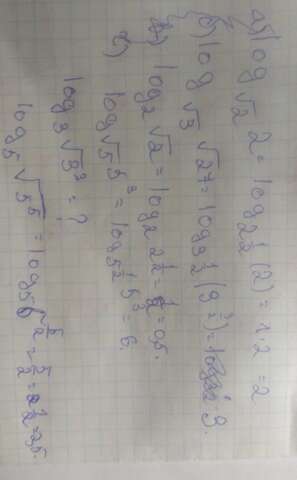 а) log√2 2 = log2^(1/2) (2) = 1·2 = 2
б) log√3 √27 = log3^(1/2) (9^(3/2)) = 3.
в) log2 √2 = log2 2^(1/2) = 1/2 = 0,5.
г) log√5 5^3 = log5^(1/2) 5^3 = 6.
log3 √3^3 = ?
log5 √5^5 = log5 5^(5/2) = 5/2 = 2 1/2 = 2,5.